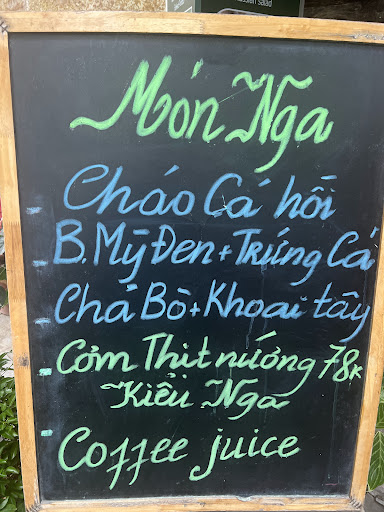 ssian salad
Món Nga
- Cháo Cá hồi
B. Mỳ Đen + Trứng Cá
- Chả Bò + Khoai tây
- Cơm Thịt nướng 78k
Kiểu Nga
- Coffee juice